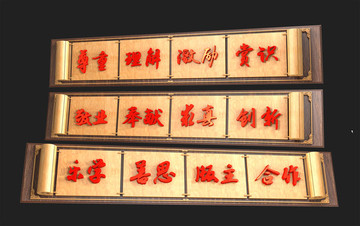 尊重 理解 激励 赏识
敬业 奉献 求真 创新
乐学 善思 自主 合作